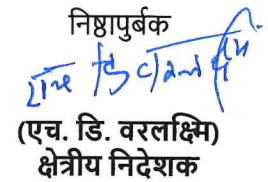 निष्ठापुर्बक
(एच. डि. वरलक्ष्मि)
क्षेत्रीय निदेशक